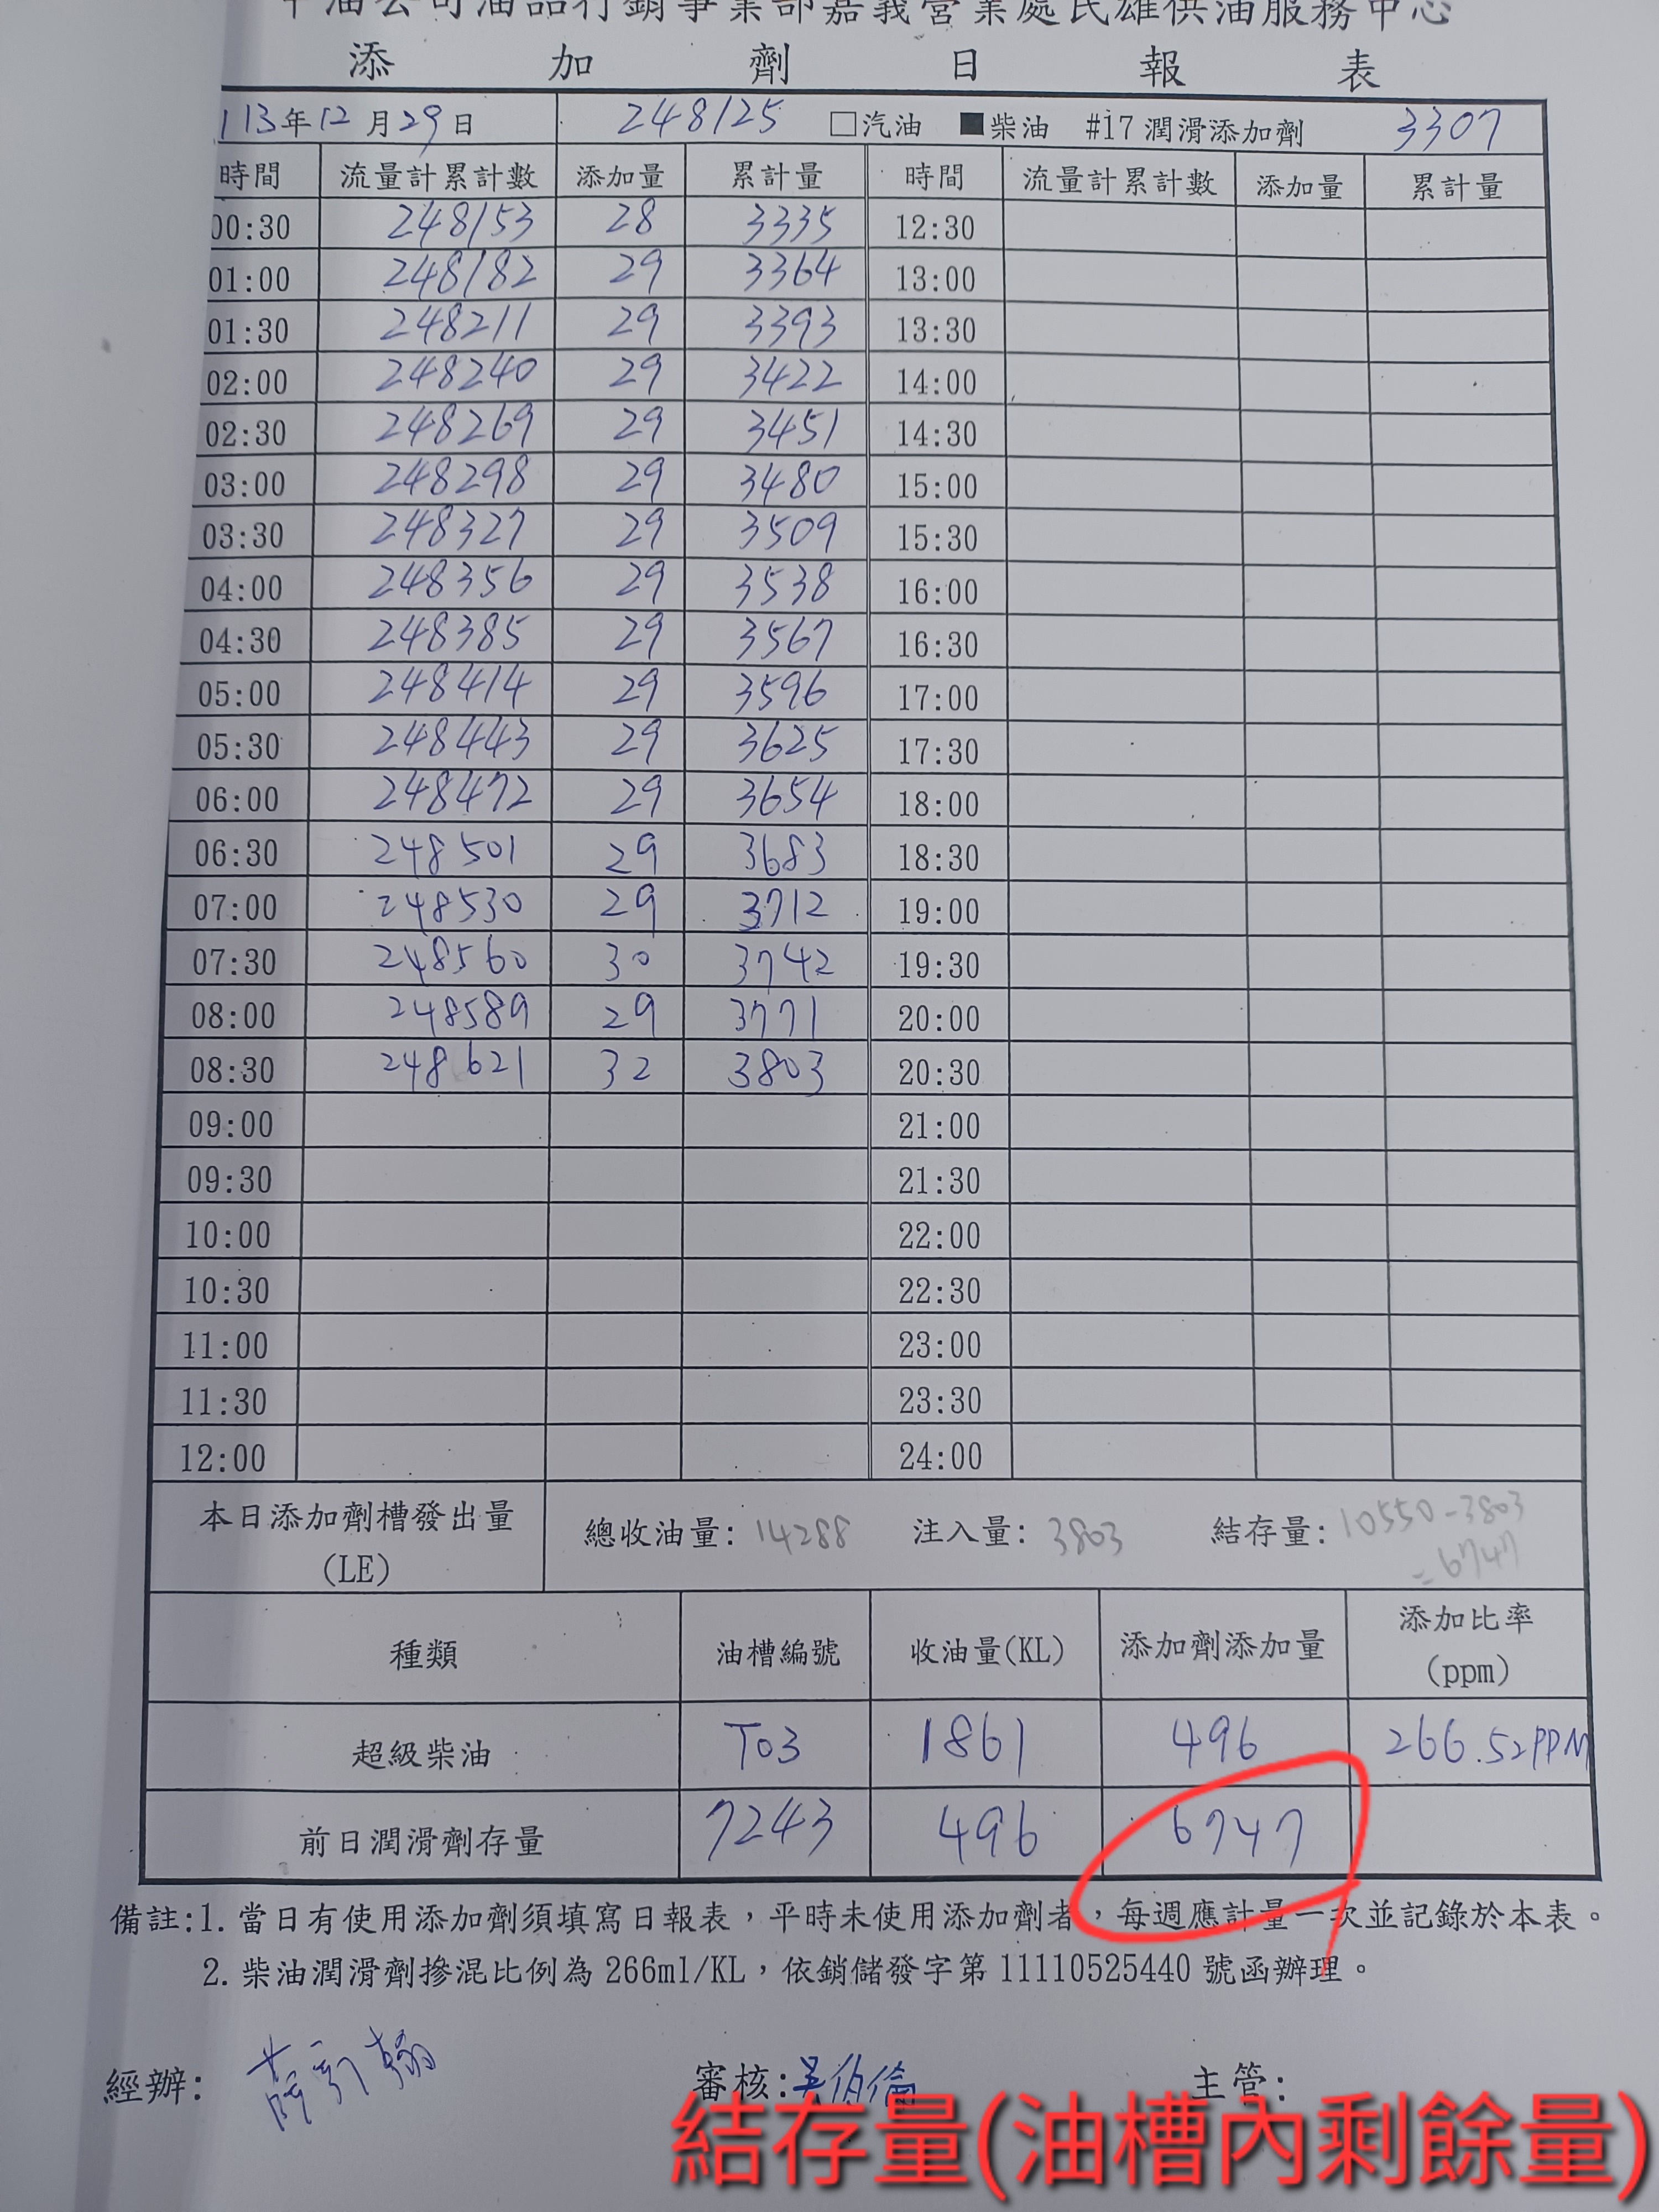 中油公司油品行銷事業部嘉義營業處民雄供油服務中心
添加劑日報表
113年12月29日 248125 □汽油 ■柴油 #17潤滑添加劑 3307
時間 流量計累計數 添加量 累計量 時間 流量計累計數 添加量 累計量
00:30 248153 28 3335 12:30
01:00 248182 29 3364 13:00
01:30 248211 29 3393 13:30
02:00 248240 29 3422 14:00
02:30 248269 29 3451 14:30
03:00 248298 29 3480 15:00
03:30 248327 29 3509 15:30
04:00 248356 29 3538 16:00
04:30 248385 29 3567 16:30
05:00 248414 29 3596 17:00
05:30 248443 29 3625 17:30
06:00 248472 29 3654 18:00
06:30 248501 29 3683 18:30
07:00 248530 29 3712 19:00
07:30 248560 30 3742 19:30
08:00 248589 29 3771 20:00
08:30 248621 32 3803 20:30
09:00 21:00
09:30 21:30
10:00 22:00
10:30 22:30
11:00 23:00
11:30 23:30
12:00 24:00
本日添加劑槽發出量
(LE)
總收油量: 14288 注入量: 3803 結存量: 10550-3803
=6747
種類 油槽編號 收油量(KL) 添加劑添加量 添加比率
(ppm)
超級柴油 T03 1861 496 266.52PPM
前日潤滑劑存量 7243 496 6747
備註:1.當日有使用添加劑須填寫日報表，平時未使用添加劑者，每週應計量一次並記錄於本表。
2.柴油潤滑劑摻混比例為266ml/KL，依銷儲發字第11110525440號函辦理。
經辦: 審核:吳伯倫 主管:
結存量(油槽內剩餘量)